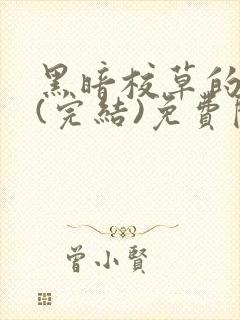 黑暗校草的
(完結)免費
曾小賢